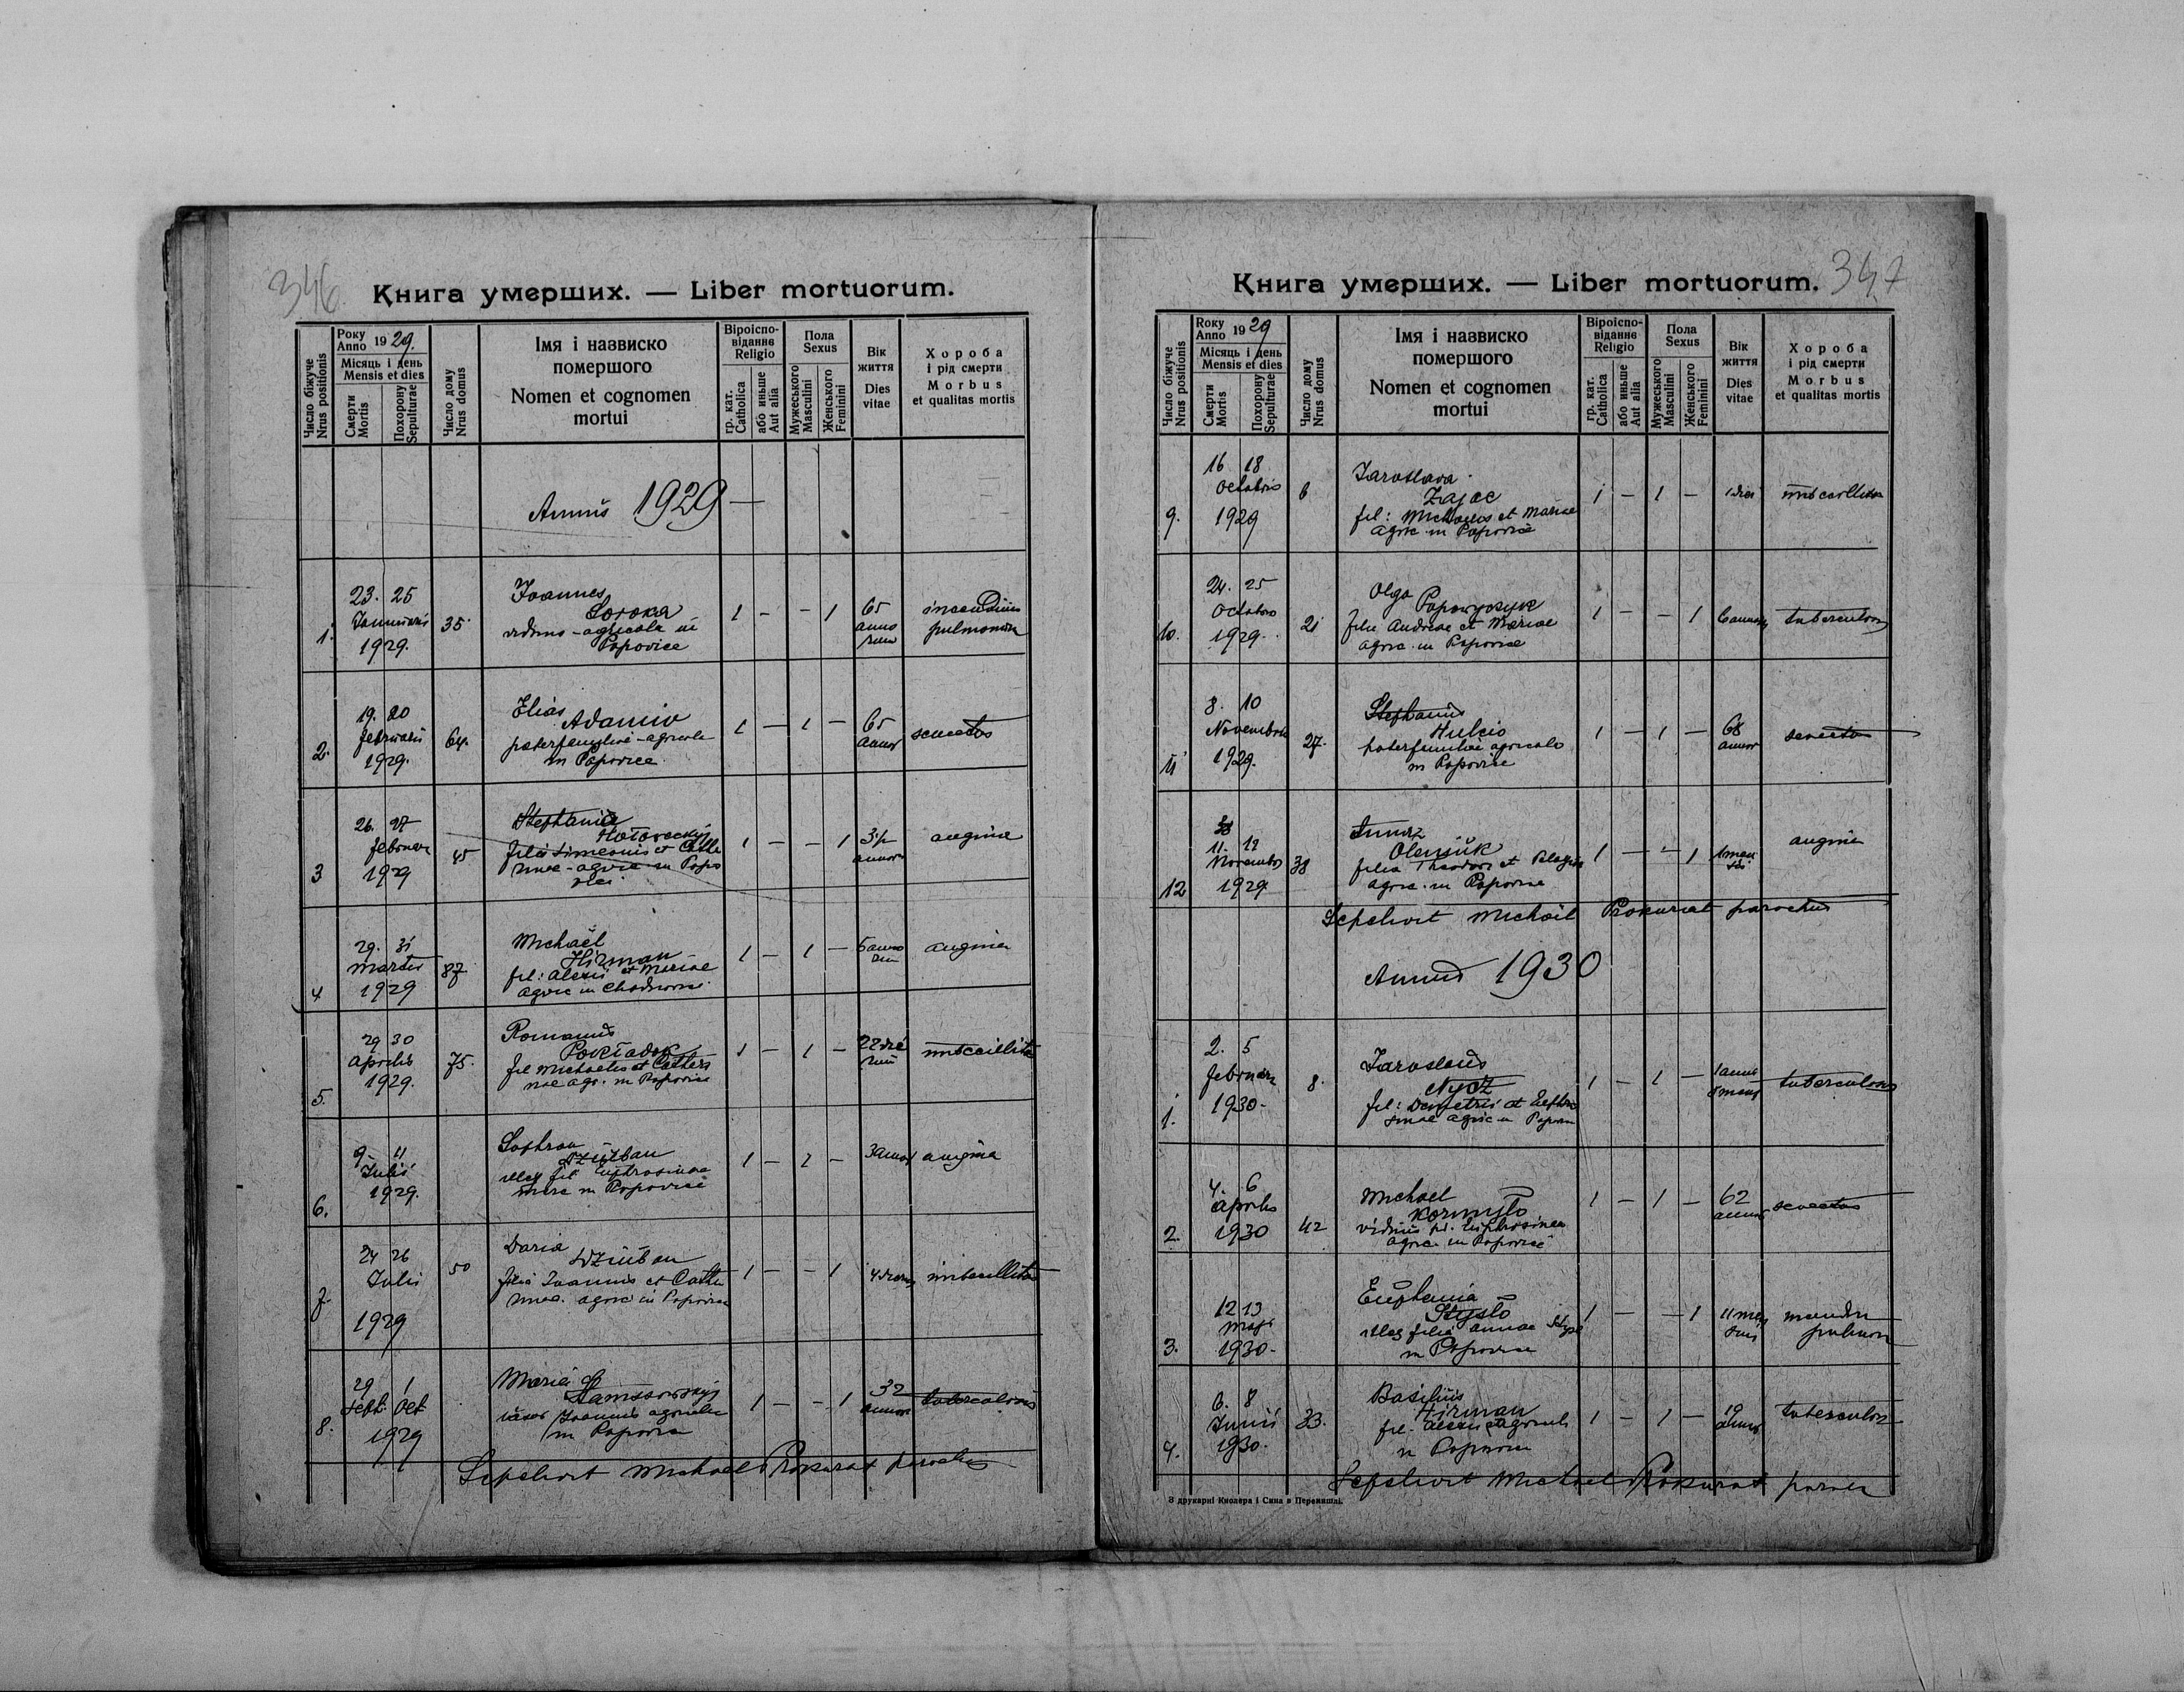 346
Книга умерших. — Liber mortuorum.
Число біжуче
Nrus positionis
Року
Anno 1929.
Місяць і день
Mensis et dies
Смерти
Mortis
Похорону
Sepulturae
Число дому
Nrus domus
Імя і назвиско
помершого
Nomen et cognomen
mortui
Віроіспо-
віданнє
Religio
гр. кат.
Catholica
або иньше
Aut alia
Пола
Sexus
Мужеського
Masculini
Женського
Feminini
Вік
життя
Dies
vitae
Хороба
і рід смерти
Morbus
et qualitas mortis
Annus 1929 —
1. 23. 25
Januarii
1929.
35.
Joannes
Soroka
agricola in
Popovice
1 - - 1
65
anno
rum
pulmonum
2. 19. 20
februarii
1929.
64.
Elias
Adamiv
agricola
in Popovice
1 — 1 —
65
annor
senectus
3 26. 27
februar
1929
45
Stephania
filia Simeonis et Cathe
rinae - agric in Popo
vici
1 - - 1
annor
angina
4 29. 31
martii
1929
87
Michaël
Hirman
fil: Alexii et Mariae
agric in
1 — 1 —
5 anno
rum
angina
5. 29 30
Aprilis
1929.
75.
Romanus
Pokladok
fil Michaelis et Cathers
nae agr. in Popovice
1 — 1 —
22 die
rum
imbecillitas
6. 9. 11
Julii
1929.
Dziuban
illeg fil Euphrosinae
in Popovice
1 — 1 —
3 annor
angina
7. 24 26
Julii
1929
50
Daria
Dziuban
filia Joannis et Cathe
rinae. agric in Popovice
1 — - 1
4 dierum
imbecillitas
8. 29 1
Sept. Oct.
1929
Maria
uxor Joannis agricolae
in Popovice
1 — - 1
32
annor
tuberculosis
Sepelivit Michael Prokurat parochus
347
Книга умерших. — Liber mortuorum.
Число біжуче
Nrus positionis
Року
Anno 1929
Місяць і день
Mensis et dies
Смерти
Mortis
Похорону
Sepulturae
Число дому
Nrus domus
Імя і назвиско
помершого
Nomen et cognomen
mortui
Віроіспо-
віданнє
Religio
гр. кат.
Catholica
або иньше
Aut alia
Пола
Sexus
Мужеського
Masculini
Женського
Feminini
Вік
життя
Dies
vitae
Хороба
і рід смерти
Morbus
et qualitas mortis
9. 16 18
Octobris
1929
6
Jaroslava
Zajac
fil: Michaelis et Mariae
agric in Popovice
1 — 1 —
imbecillitas
10. 24. 25
Octobris
1929.
21
Olga
Popowyczyk
filia Andreae et Mariae
agric. in Popovice
1 — — 1
6 annor
tuberculosis
11 8. 10
Novembris
1929.
27.
Stephanus
Hulcio
paterfamiliae agricola
in Popovice
1 — 1 —
68
annor
senectus
12 11. 12
Novembris
1929
38
Olensiuk
filia Theodori et Pelagiae
agric. in Popovice
1 — - 1
1 men
sis
angina
Sepelivit Michael Prokurat parochus
Annus 1930
1. 2. 5
februarii
1930-
8.
Jaroslaus
Nycz
fil: Demetrii et Euphro
sinae agric in Popovice
1 — 1 —
1 anni
tuberculosis
2. 4. 6
Aprilis
1930
42
Michael
Kormylo
viduus p. Euphrosinae
agric. in Popovice
1 — 1 —
62
annor
senectus
3. 12 13
Maji
1930-
Euphemia
Styslo
illeg filia Annae
in Popovice
1 — - 1
11 men
sis
4. 6. 8
Junii
1930.
33.
Basilius
Hirman
fil. Alexii agricola
in Popovice
1 — 1 —
19
annor
tuberculosis
Sepelivit Michael Prokurat
З друкарні Кнолера і Сина в Перемишлі.